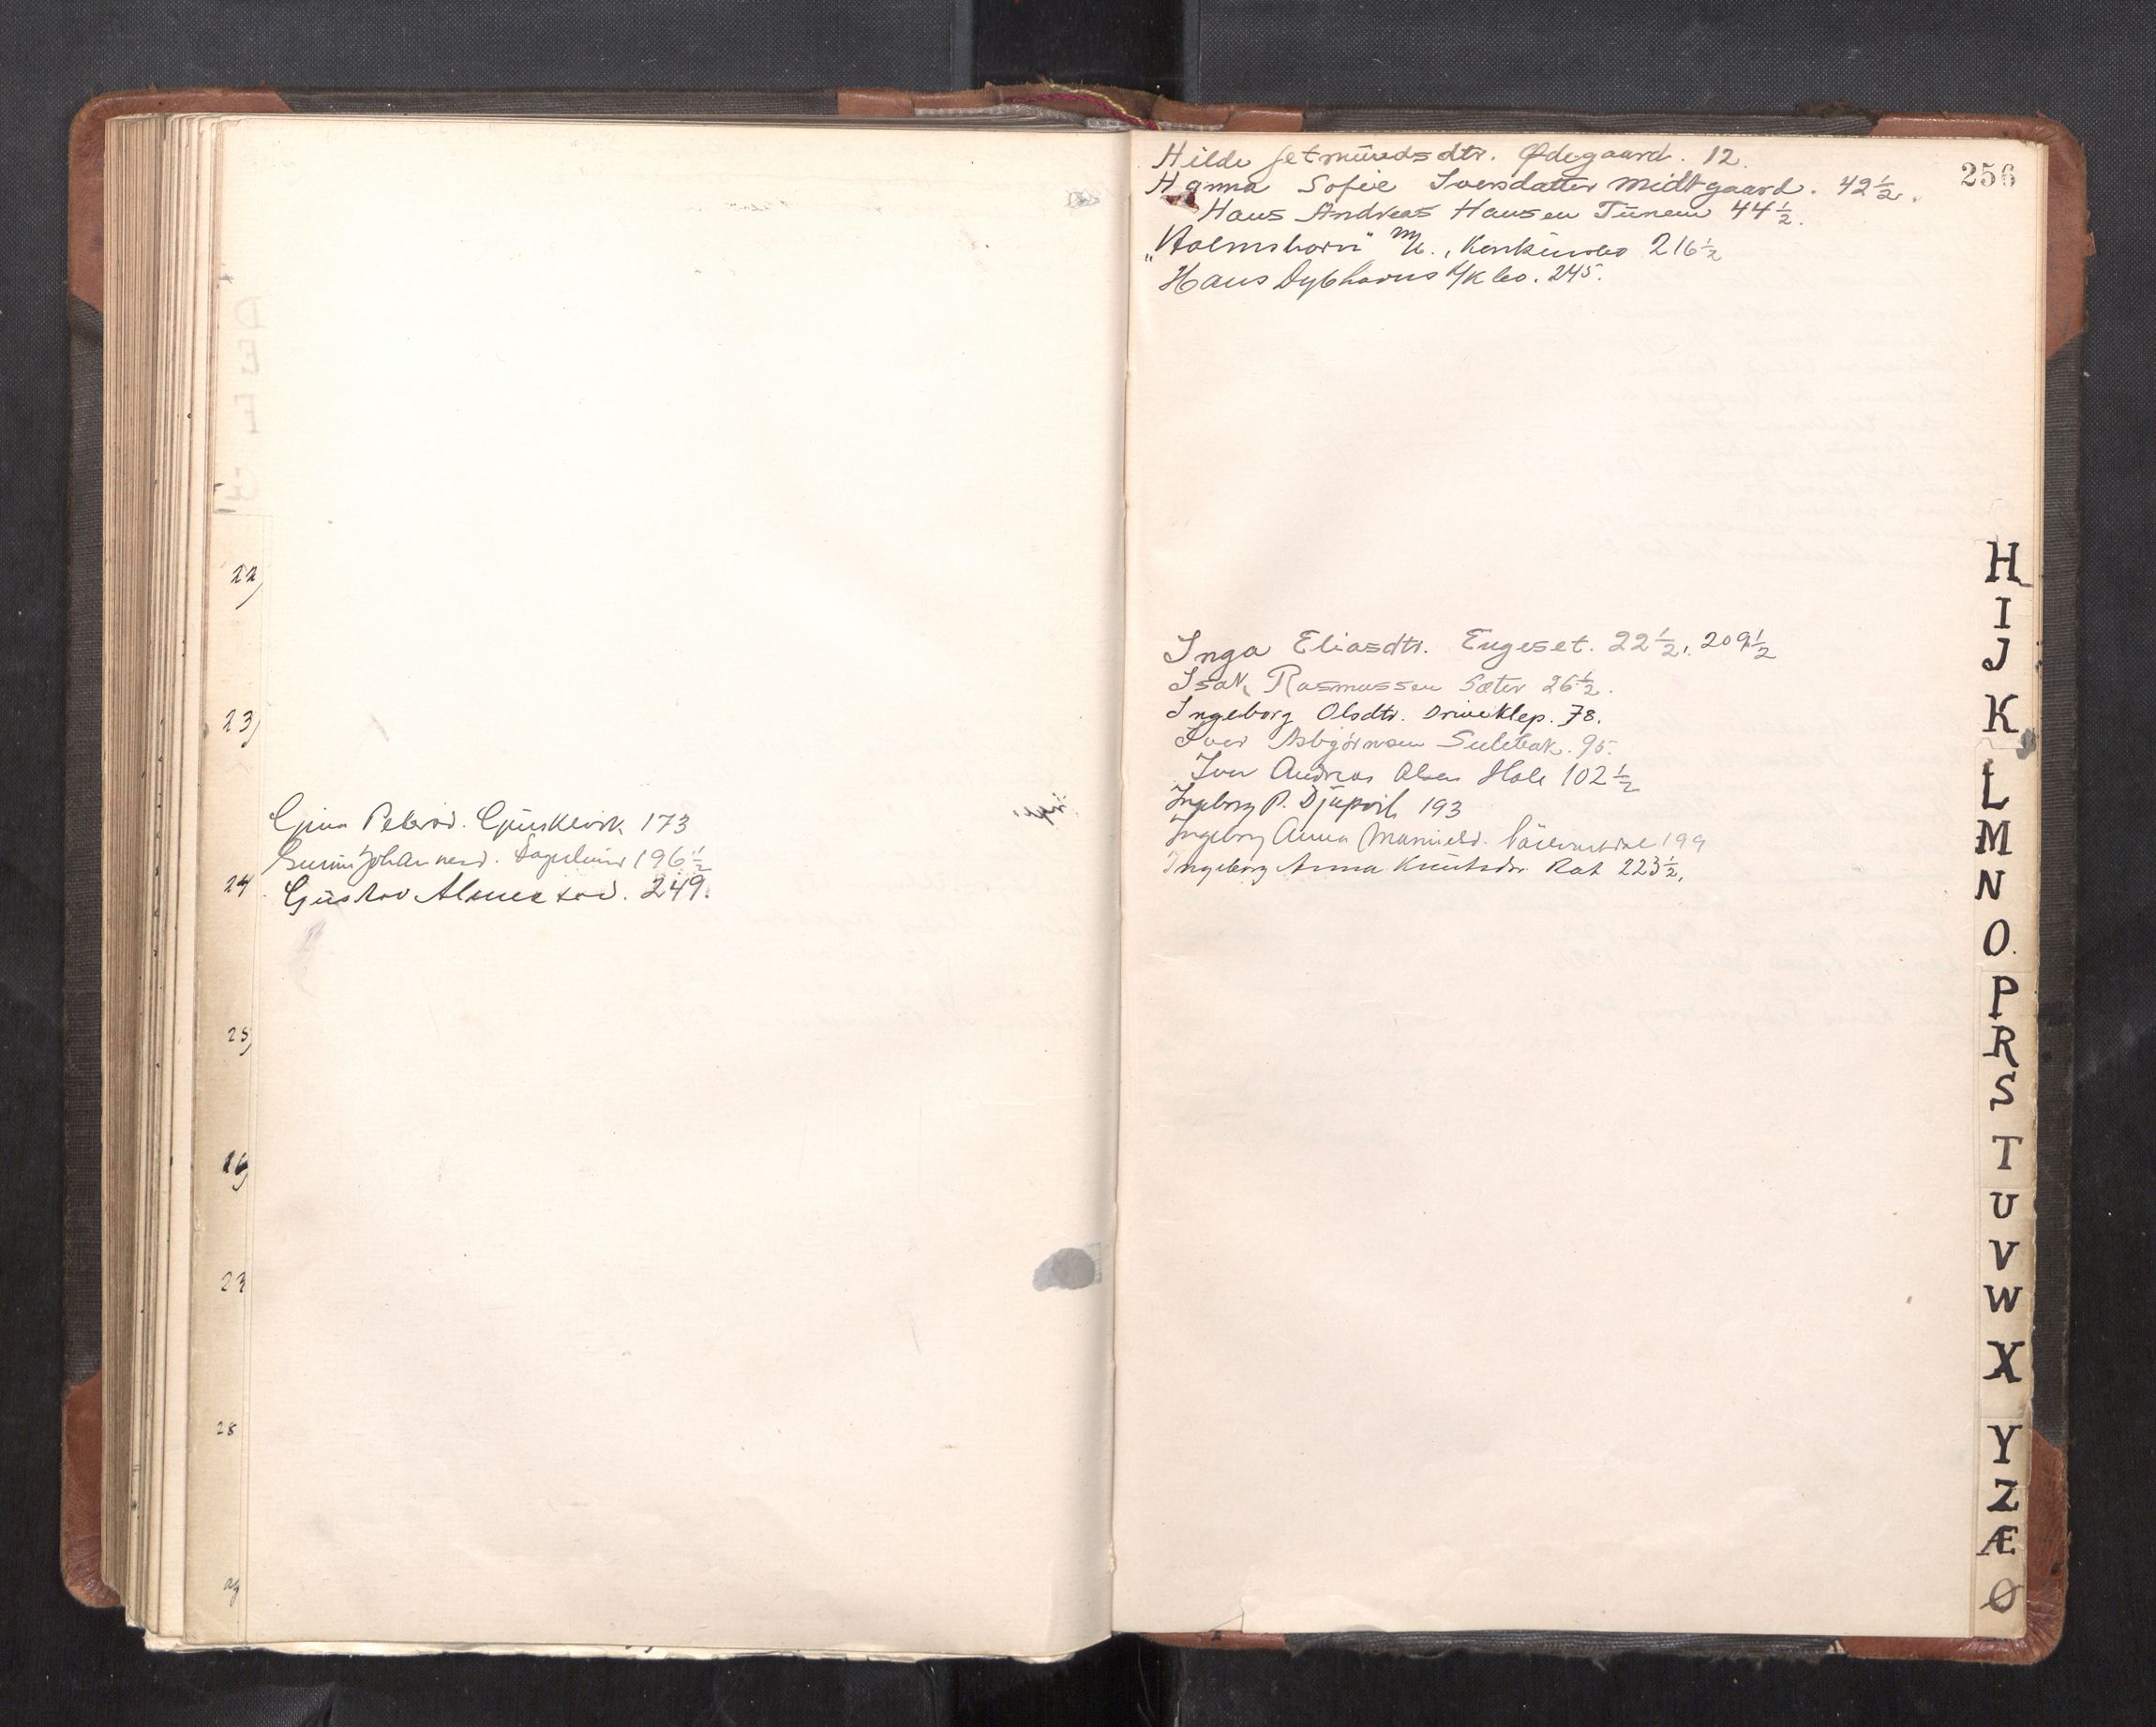 22)
23)
Gjina Petersd. Gjuskevik 173
Johannesd. 196½
24
Gustav Almestad. 249.
25)
16)
23
28
256
Hilde Getmundsdtr. Ødegaard. 12.
Hanna Sofie Iversdatter Midtgaard. 42½.
Hans Andreas Hansen Tunem 44½.
„Holmshorn" M/k., Konkursbo 216½
Hans Dybhavns A/K bo. 245.
Inga Eliasdtr. Engeset. 22½, 209½
Isak Rasmussen Sæter 26½.
Ingeborg Olsdtr. Driveklep. 78.
Iver Asbjørnsen Sulebak. 95.
Iver Andreas Olsen Hole 102½
Ingeborg P. Djupvik 193
Ingeborg Anna 199
Ingeborg Anna Knutsdr. Rat 223½,
H
I
J
K
L
M
N
O.
P
R
S
T
U
V
W
X
Y
Z
Æ
Ø